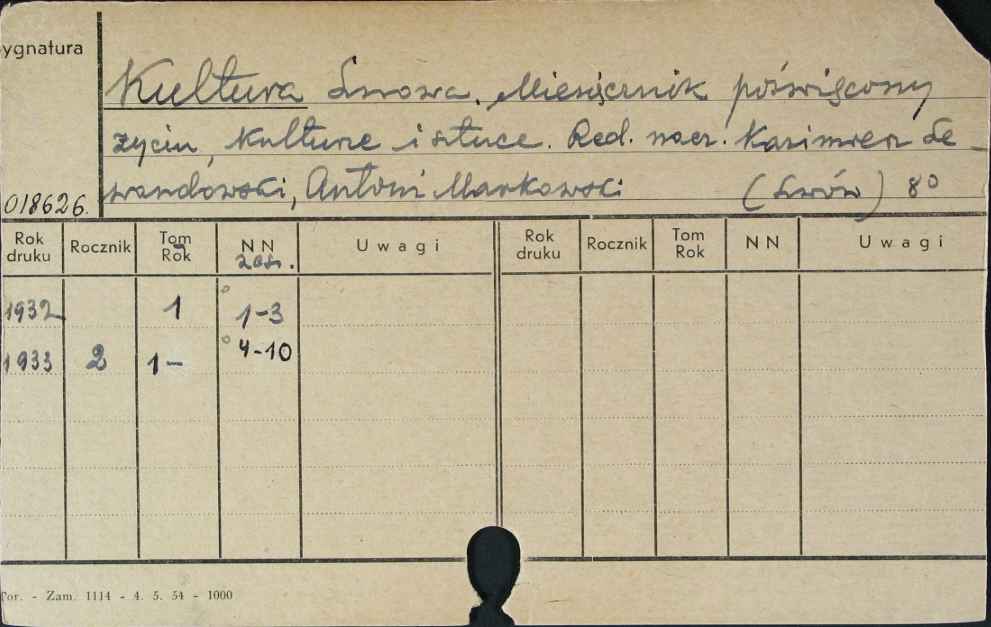 ygnatura
Kultura Lwowa. Miesięcznik poświęcony
życiu, kulturze i sztuce. Red. nacz. Kazimierz Le-
wandowski, Antoni Markowski (Lwów) 8°
018626.
Rok druku Rocznik Tom Rok NN zesz. Uwagi Rok druku Rocznik Tom Rok NN Uwagi
1932 1 1-3
1933 2 1- 4-10
Tor. - Zam. 1114 - 4. 5. 54 - 1000